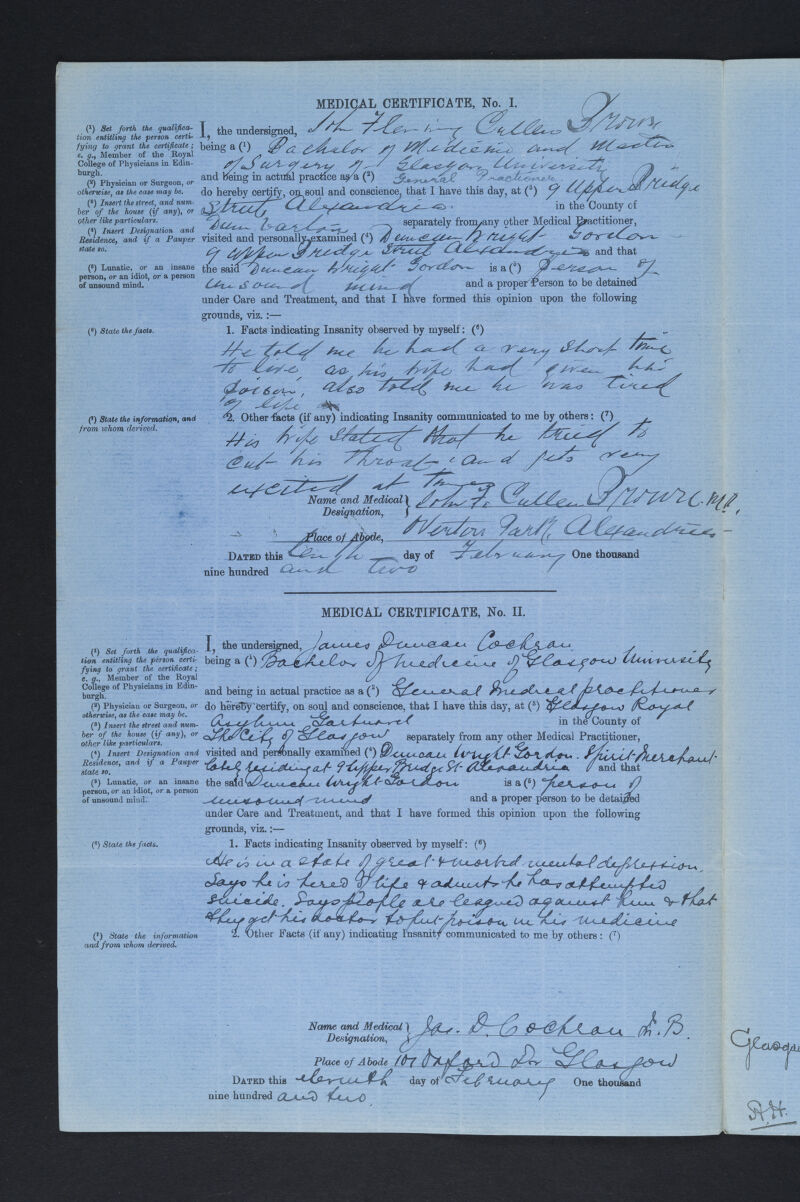 MEDICAL CERTIFICATE, No. I.
(¹) Set forth the qualifica-
tion entitling the person certi-
fying to grant the certificate;
e. g., Member of the Royal
College of Physicians in Edin-
burgh.
(²) Physician or Surgeon, or
otherwise, as the case may be.
(³) Insert the street, and num-
ber of the house (if any), or
other like particulars.
(⁴) Insert Designation and
Residence, and if a Pauper
state so.
(⁵) Lunatic, or an insane
person, or an idiot, or a person
of unsound mind.
(⁶) State the facts.
(⁷) State the information, and
from whom derived.
I, the undersigned, John Fleming Cullen Brown
being a (¹) Bachelor of Medicine and Master
of Surgery of Glasgow University
and being in actual practice as a (²) General Practioner
do hereby certify, on soul and conscience, that I have this day, at (³) 9 Upper Bridge
Street, Alexandria in the County of
Dumbarton separately from any other Medical Practitioner,
visited and personally examined (⁴) Duncan Wright Gordon
9 Upper Bridge Street Alexandria and that
the said Duncan Wright Gordon is a (⁵) Person of
unsound mind and a proper Person to be detained
under Care and Treatment, and that I have formed this opinion upon the following
grounds, viz. :—
1. Facts indicating Insanity observed by myself: (⁶)
He told me he had a very short time
to live, as his wife had given him
poison, also told me he was tired
of life
2. Other facts (if any) indicating Insanity communicated to me by others: (⁷)
His wife stated that he tried to
cut his throat, and gets very
excited at times
Name and Medical Designation, John F. Cullen Brown. M.B.
Place of Abode, Overton Park, Alexandria
DATED this tenth day of February One thousand
nine hundred and two
MEDICAL CERTIFICATE, No. II.
(¹) Set forth the qualifica-
tion entitling the person certi-
fying to grant the certificate;
e. g., Member of the Royal
College of Physicians in Edin-
burgh.
(²) Physician or Surgeon, or
otherwise, as the case may be.
(³) Insert the street and num-
ber of the house (if any), or
other like particulars.
(⁴) Insert Designation and
Residence, and if a Pauper
state so.
(⁵) Lunatic, or an insane
person, or an idiot, or a person
of unsound mind.
(⁶) State the facts.
(⁷) State the information
and from whom derived.
I, the undersigned, James Duncan Cochran
being a (¹) Bachelor of Medicine of Glasgow University
and being in actual practice as a (²) General Medical practitioner
do hereby certify, on soul and conscience, that I have this day, at (³) Glasgow Royal
Asylum Gartnavel in the County of
The City of Glasgow separately from any other Medical Practitioner,
visited and personally examined (⁴) Duncan Wright Gordon. Spirit Merchant
lately residing at 9 Upper Bridge St Alexandria and that
the said Duncan Wright Gordon is a (⁵) person of
unsound mind and a proper person to be detained
under Care and Treatment, and that I have formed this opinion upon the following
grounds, viz. :—
1. Facts indicating Insanity observed by myself: (⁶)
He is in a state of great & morbid mental depression.
Says he is tired of life & admits he has attempted
suicide. Says people are leagued against him & that
they get his doctor to put poison in his medicine
2. Other Facts (if any) indicating Insanity communicated to me by others: (⁷)
Name and Medical Designation, Jas. D. Cochran M.B.
Place of Abode 107 Oxford St Glasgow
DATED this eleventh day of February One thousand
nine hundred and two.
A.H.